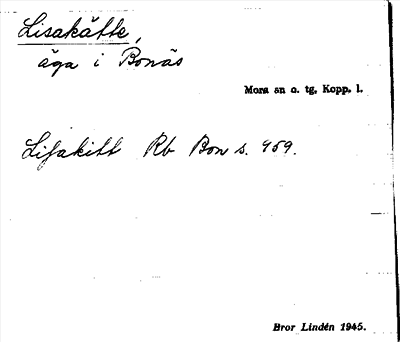 Lisakätte,
äga i Bonäs
Mora sn o. tg, Kopp. l.
Lisakitt Rb Bon s. 959.
Bror Lindén 1945.